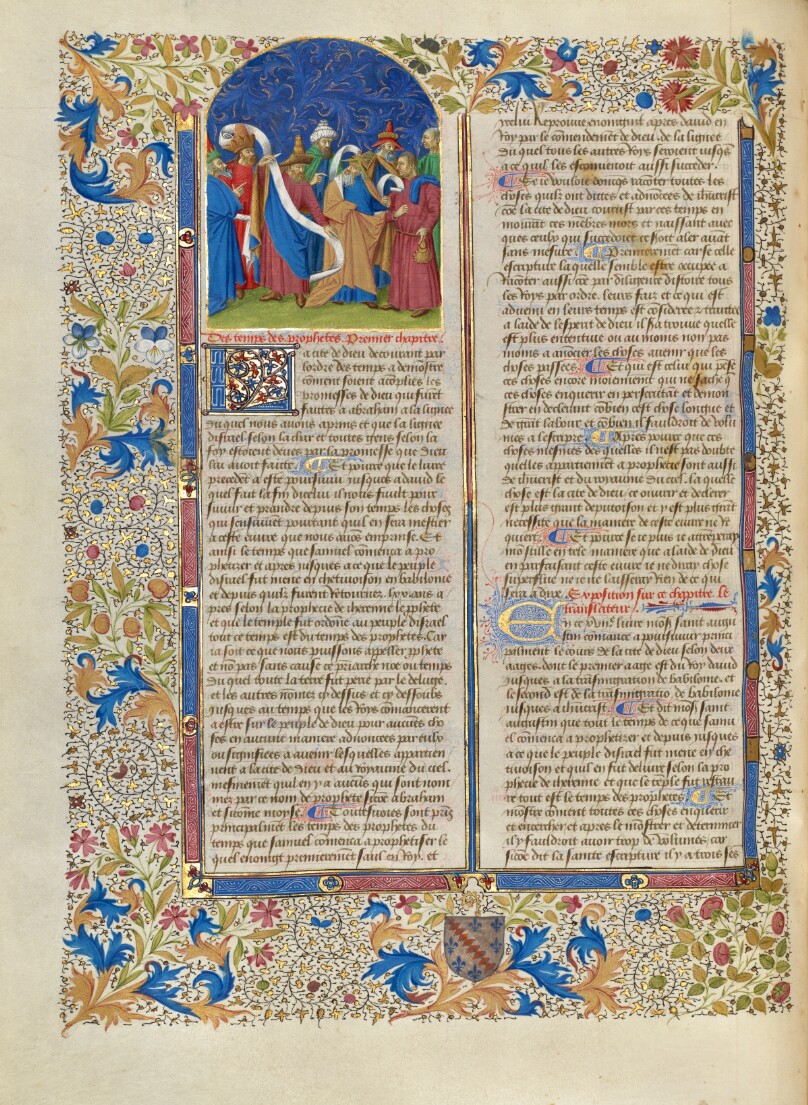 Des temps des prophetes. Premier chapitre.
La cite de dieu decourant par
lordre des temps a demostre
coment soient acoplies les
promesses de dieu qui furẽt
faittes a abraham a la lignee
du quel nous auons aprins et que la lignee
disrael selon la char et toutes gens selon la
foy estoient deues par la promesse que dieu
lui auoit faitte. Et pource que le liure
precedẽt a este poursuiui iusques a dauid le
quel fait la fin dicelui il nous fault pour
suiuir et prendre depuis son temps les choses
qui sensuiuẽt pourtant quil en sera mestier
a ceste euure que nous auõs emprinse. Et
ainsi le temps que samuel comẽca a pro
phetizer et apres iusques a ce que le peuple
disrael fut mene en chetiuoison en babilonie
et depuis quilz furent retournez lxx ans a
pres selon la prophecie de iheremie le pphete
et que le temple fut ordõne au peuple disrael
tout ce temps est du temps des prophetes. Car
ia soit ce que nous puissons appeller pphete
et nõ pas sans cause ce priarche noe ou temps
du quel toute la terre fut perie par le deluge.
et les autres nõmez cy dessus et cy dessoubz
iusques au temps que les roys comẽcerent
a estre sur le peuple de dieu pour aucũes cho
ses en aucune maniere adnoncees par eulx
ou signifiees a auenir lesquelles apartien
nent a la cite de dieu et au royaume du ciel.
mesmemẽt quil en y a aucũs qui sont nom
mez par ce nom de prophete sicõe abraham
et sicõme moyse. Touttesuoies sont pris
principalmẽt les temps des prophetes du
temps que samuel comẽca a prophetiser le
quel enoingt premieremẽt saul en roy. et
ycelui Reprouue enoingnit apres dauid en
roy par le cõmendemẽt de dieu. de la lignee
du quel tous les autres roys seroient iusqs
a ce quil les esconuenoit aussi succeder.
Se ie vouloie doncqs racõter toutes les
choses quilz ont dittes et adnõcees de ihucrist
cõe la cite de dieu courust par ces temps en
mouãt ces mẽbres mors et naissant auec
ques ceulx qui succedoiẽt ce soit aler auãt
sans mesure. Premieremẽt car se celle
escripture la quelle semble estre occupee a
racõter aussi cõe par diligence distoire tous
les roys par ordre. leurs faiz et ce qui est
aduenu en leurs temps est cõsideree et traittee
a laide de lesperit de dieu il sa trouue quelle
est plus ententiue ou au moins non pas
moins a anõcer les choses auenir que les
choses passees. Et qui est celui qui pẽse
ces choses encore moiennemẽt qui ne sache q̃
ces choses enquerir en perscrutãt et demon
strer en declerãnt cõbien cest chose longue et
de grãt labour et cõbien il fauldroit de volu
mes a lescripre. Apres pource que ces
choses mesmes des quelles il nest pas doubte
quelles appartienẽt a prophecie sont aussi
de ihucrist et du royaume du ciel. la quelle
chose est la cite de dieu. ce ouurir et declerer
est plus grant disputoison et y est plus grãt
necessite que la maniere de ceste euure ne re
quiert. Et pource se ie puis ie attemperay
mõ stille en telle maniere que a laide de dieu
en parfaisant ceste euure ie ne diray chose
superflue ne ie ne laisseray riẽn de ce qui
sera a dire. Exposition sur ce chapitre. le
translateur.
En ce xvijᵉ liure mõsᵉ saint augu
stin cõmance a poursuiuir princi
palment le cours de la cite de dieu selon deux
aages. dont le premier aage est du roy dauid
iusques a la trãsmigratiõ de babilonie. et
le second est de la transmigratio. de babilonie
iusques a ihucrist. Et dit mõsᵉ saint
augustin que tout le temps de ce que samu
el comẽca a prophetizer et depuis iusques
a ce que le peuple disrael fut mene en che
tiuoison et quil en fut deliure selon la pro
phecie de iheremie et que le tẽple fut restau
re tout est le temps des prophetes. Et
mõstre cõment toutes ces choses enquerir
et encerchier et apres le mõstrer et determiner
il y fauldroit auoir trop de volumes. car
sicõe dit la sainte escripture il y a trois ses